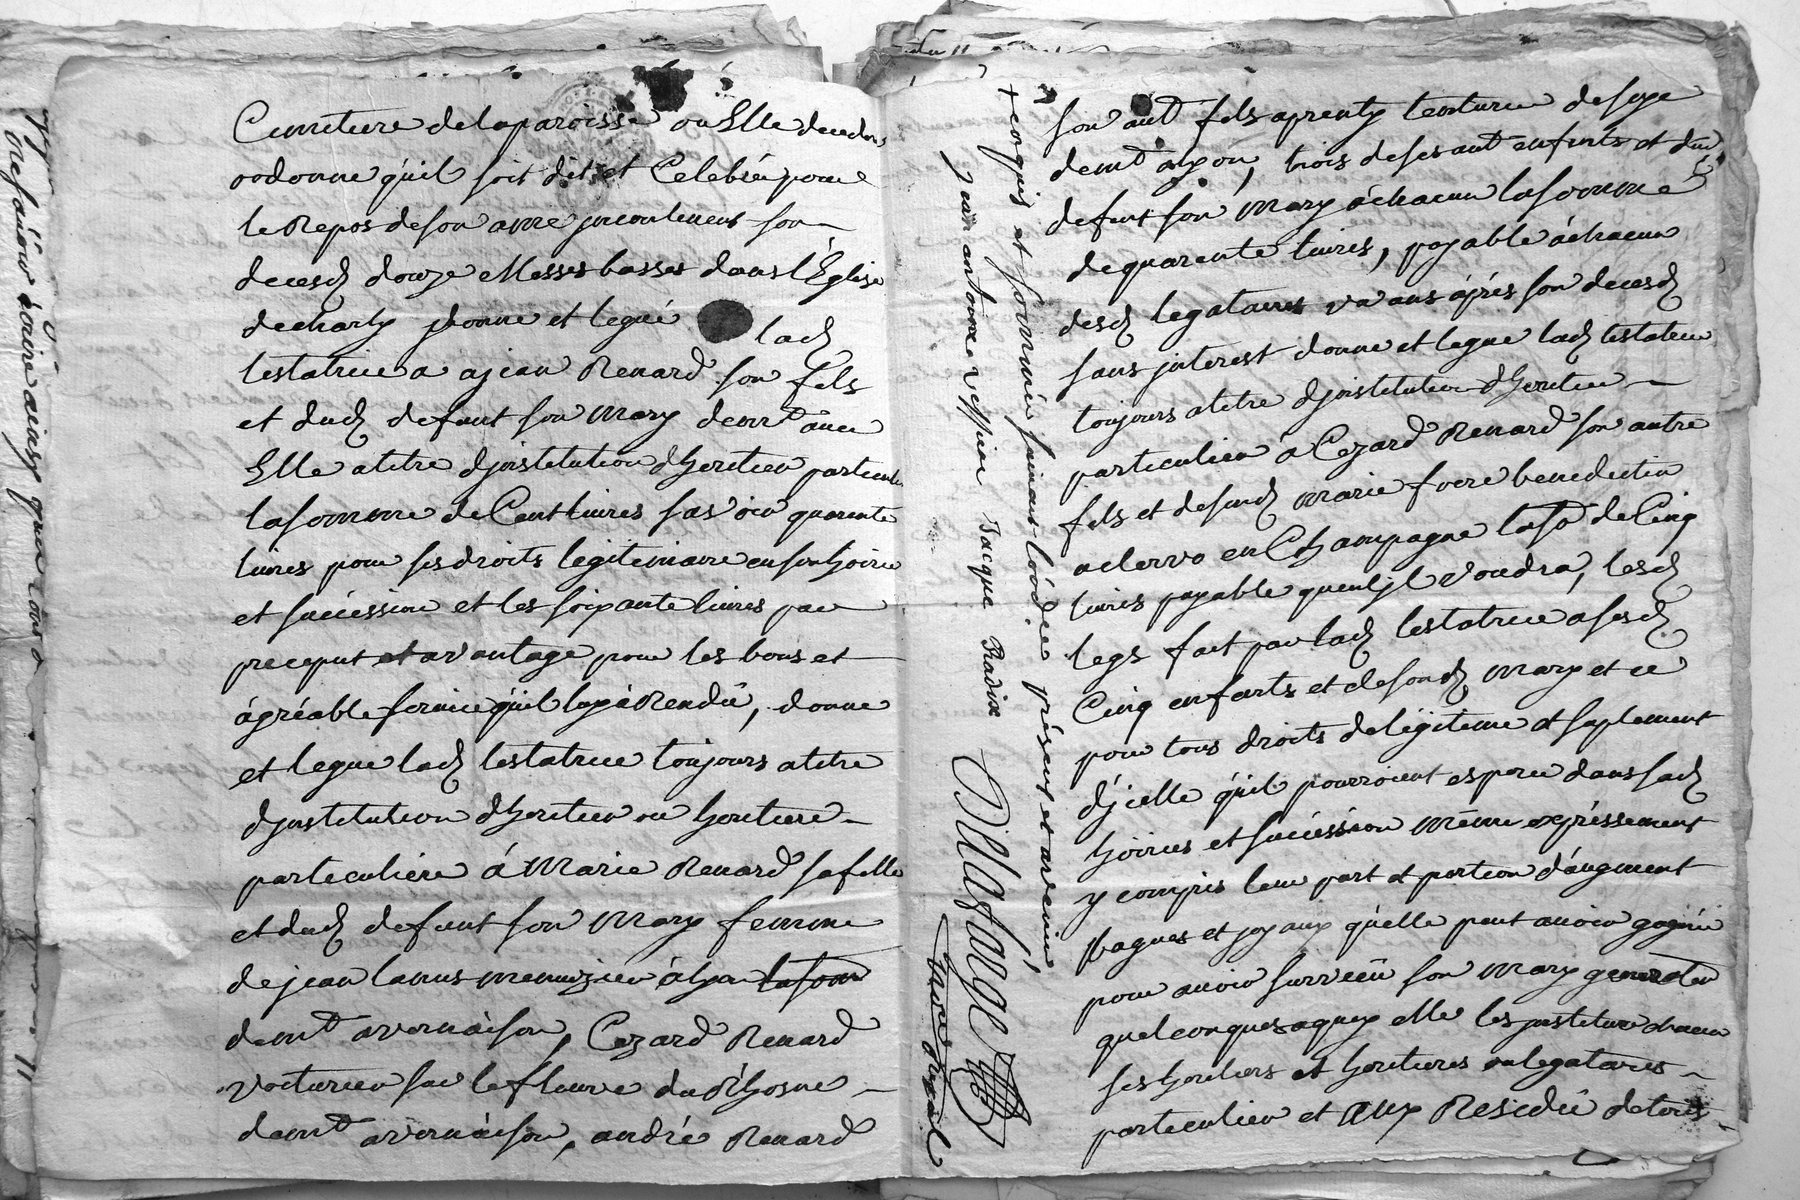 Cimetiere delaparoisse ou Elle decedera
ordonne quil soit dit et Celebrée pour
le Repos deson ame jncontinent son
decesd douze Messes basses dans l'Église
decharly jdonne et legué lad
testatrice a ajean Renard son fils
et dud defunt son mary demt avec
Elle atitre djnstitution dheritier particulier
lasomme deCent livres sçavoir quarente
livres pour ses droits legitimaire enson hoirie
et succession et les soixante livres par
preciput et avantage pour les bons et
ágréable service quil luy a Rendû, donne
et legue lad testatrice toujours atitre
djnstitution dheritier ou heritiere
particuliére á Marie Renard safille
et dud defunt son mary femme
dejean lanus menuizier ályon lasom
demt avernaison, Cezard Renard
voiturier sur lefleuve du Rhosne
demt avernaison, andré Renard
+ conquis et sommée jamais lordre présent et avenir
jean antoine veffier Jacque Bravixe
Dillastage
son aut fils aprenty teinturier desoye
demt alyon, trois deses aut enfants et dud
defunt son mary áchacun lasomme
dequarente livres, payable áchacun
desd legataires un ans áprés son decesd
sans jnterest donne et legue lad testatrice
toujours atitre djnstitution dheritier
particulier á Cezard Renard son autre
fils et desond marie frere benedictin
aclervo en Champagne laso deCinq
livres payable quenjl voudra, lesd
legs fait par lad testatrice asesd
Cinq enfants et desond mary et ce
pour tous droits delégitime et suplement
djcelle quil pourroient esperer dans sad
hoiries et succession même expréssement
y compris leur part et portion d'augment
bagues et joyaux qu'elle peut avoir gagnée
pour avoir survécu son mary
quelconques aquoy elle les jnstitue chacun
ses heritiers et heritieres et legataires
particulier et aux Residû detous